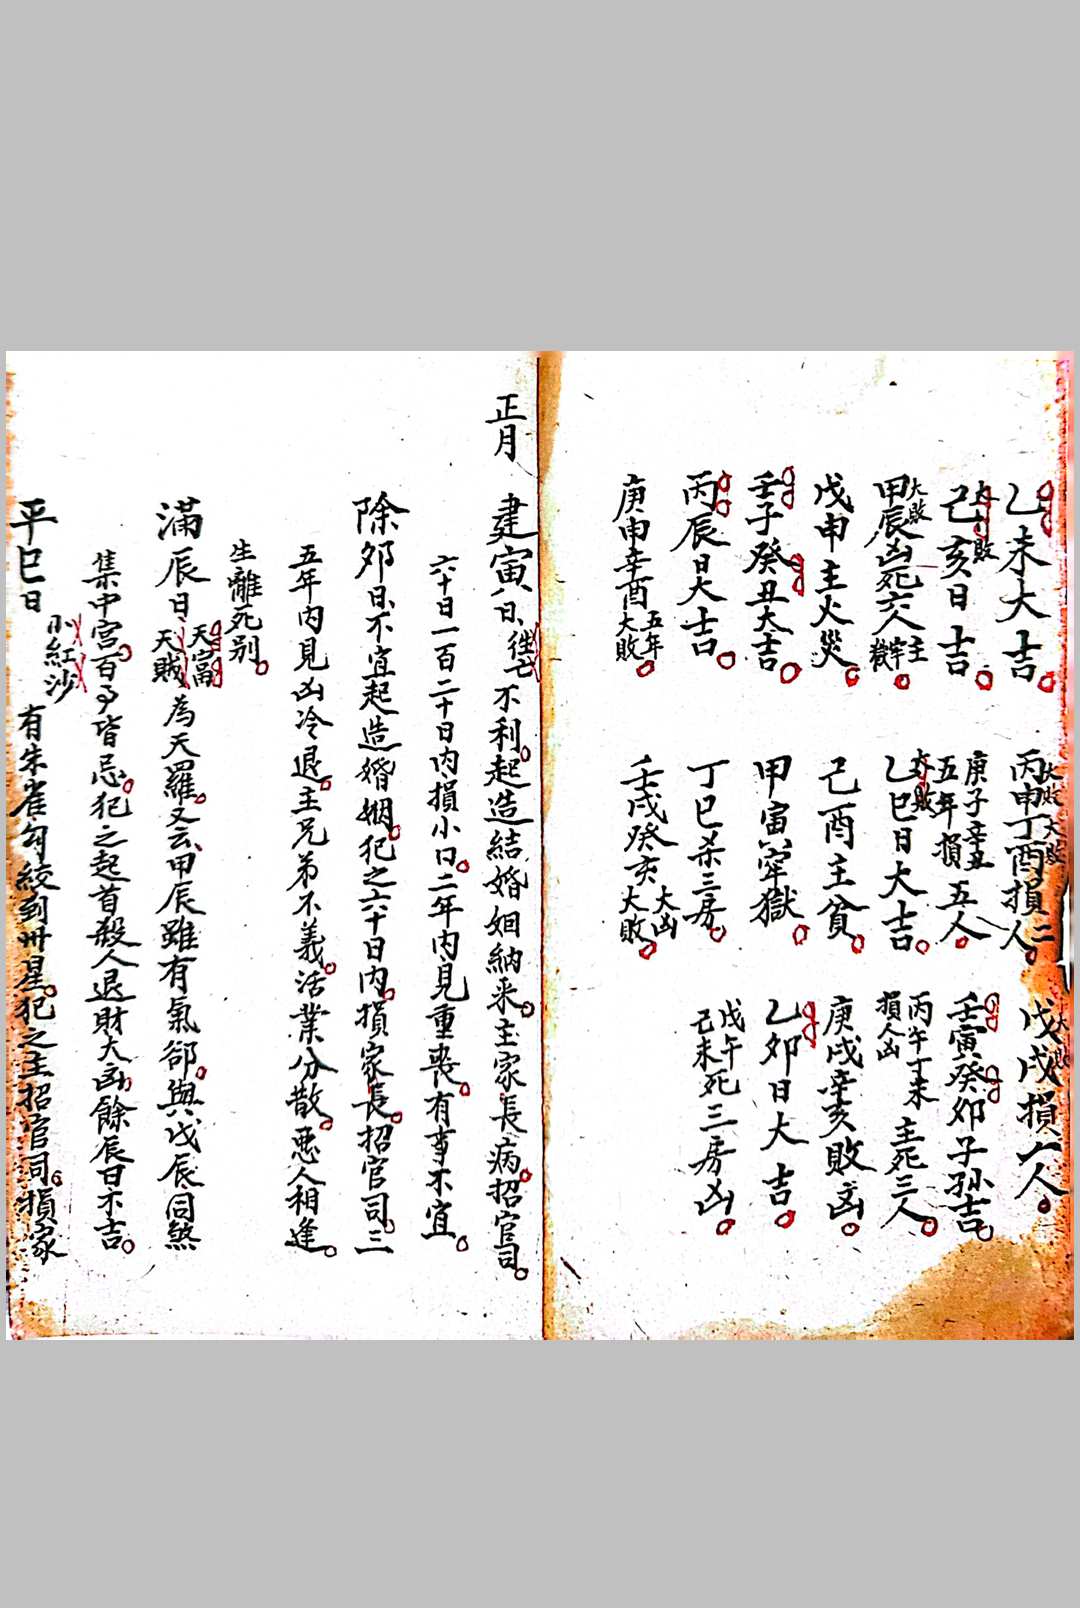 乙未大吉
丙申丁酉損二人
大敗 大敗
戊戌損六人
己亥日吉
庚子辛丑
五年損五人
壬寅癸卯子孫吉
甲辰凶死六人
大敗
乙巳日大吉
丙午丁未主死三人
損人凶
戊申主火災
己酉主貧
庚戌辛亥敗凶
壬子癸丑大吉
甲寅牢獄
乙卯日大吉
丙辰日大吉
丁巳杀三房
戊午
己未死三房凶
庚申辛酉五年
大敗
壬戌癸亥大凶
大敗
正月
建寅日往亡不利起造結婚姻納采主家長病招官司
六十日一百二十日内損小口二年内見重喪有事不宜
除夘日不宜起造婚姻犯之六十日内損家長招官司三
五年内見凶冷退主兄弟不義活業分散惡人相逢
生離死别
滿辰日天富
天賊為天羅又云甲辰雖有氣郤與戊辰同煞
集中宮百事皆忌犯之起首殺人退財大凶餘辰日不吉
平巳日小紅沙有朱雀勾絞到卅星犯之主招官司損家